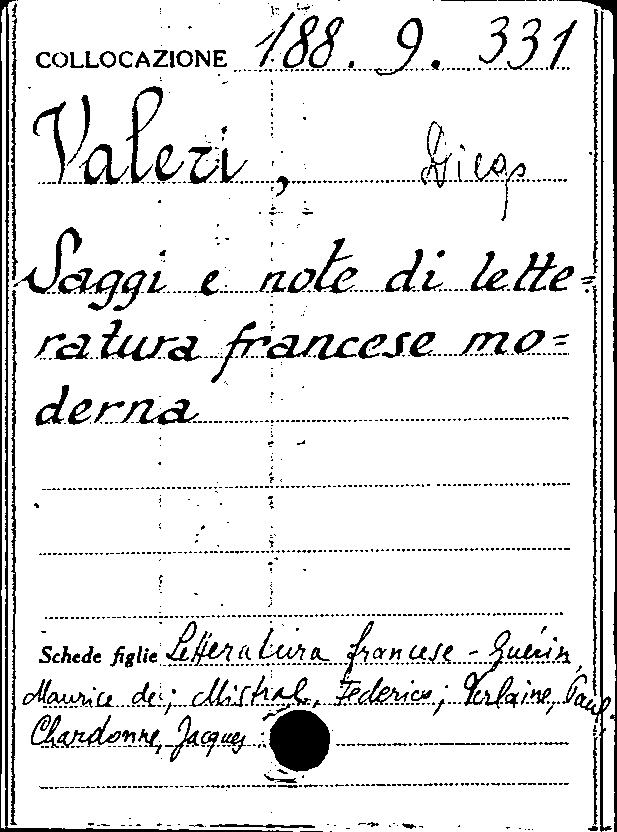 COLLOCAZIONE 188. 9. 331
Valeri, Diego
Saggi e note di lette=
ratura francese mo=
derna
Schede figlie Letteratura francese - Guérin,
Maurice de; Mistral, Federico; Verlaine, Paul;
Chardonne, Jacques